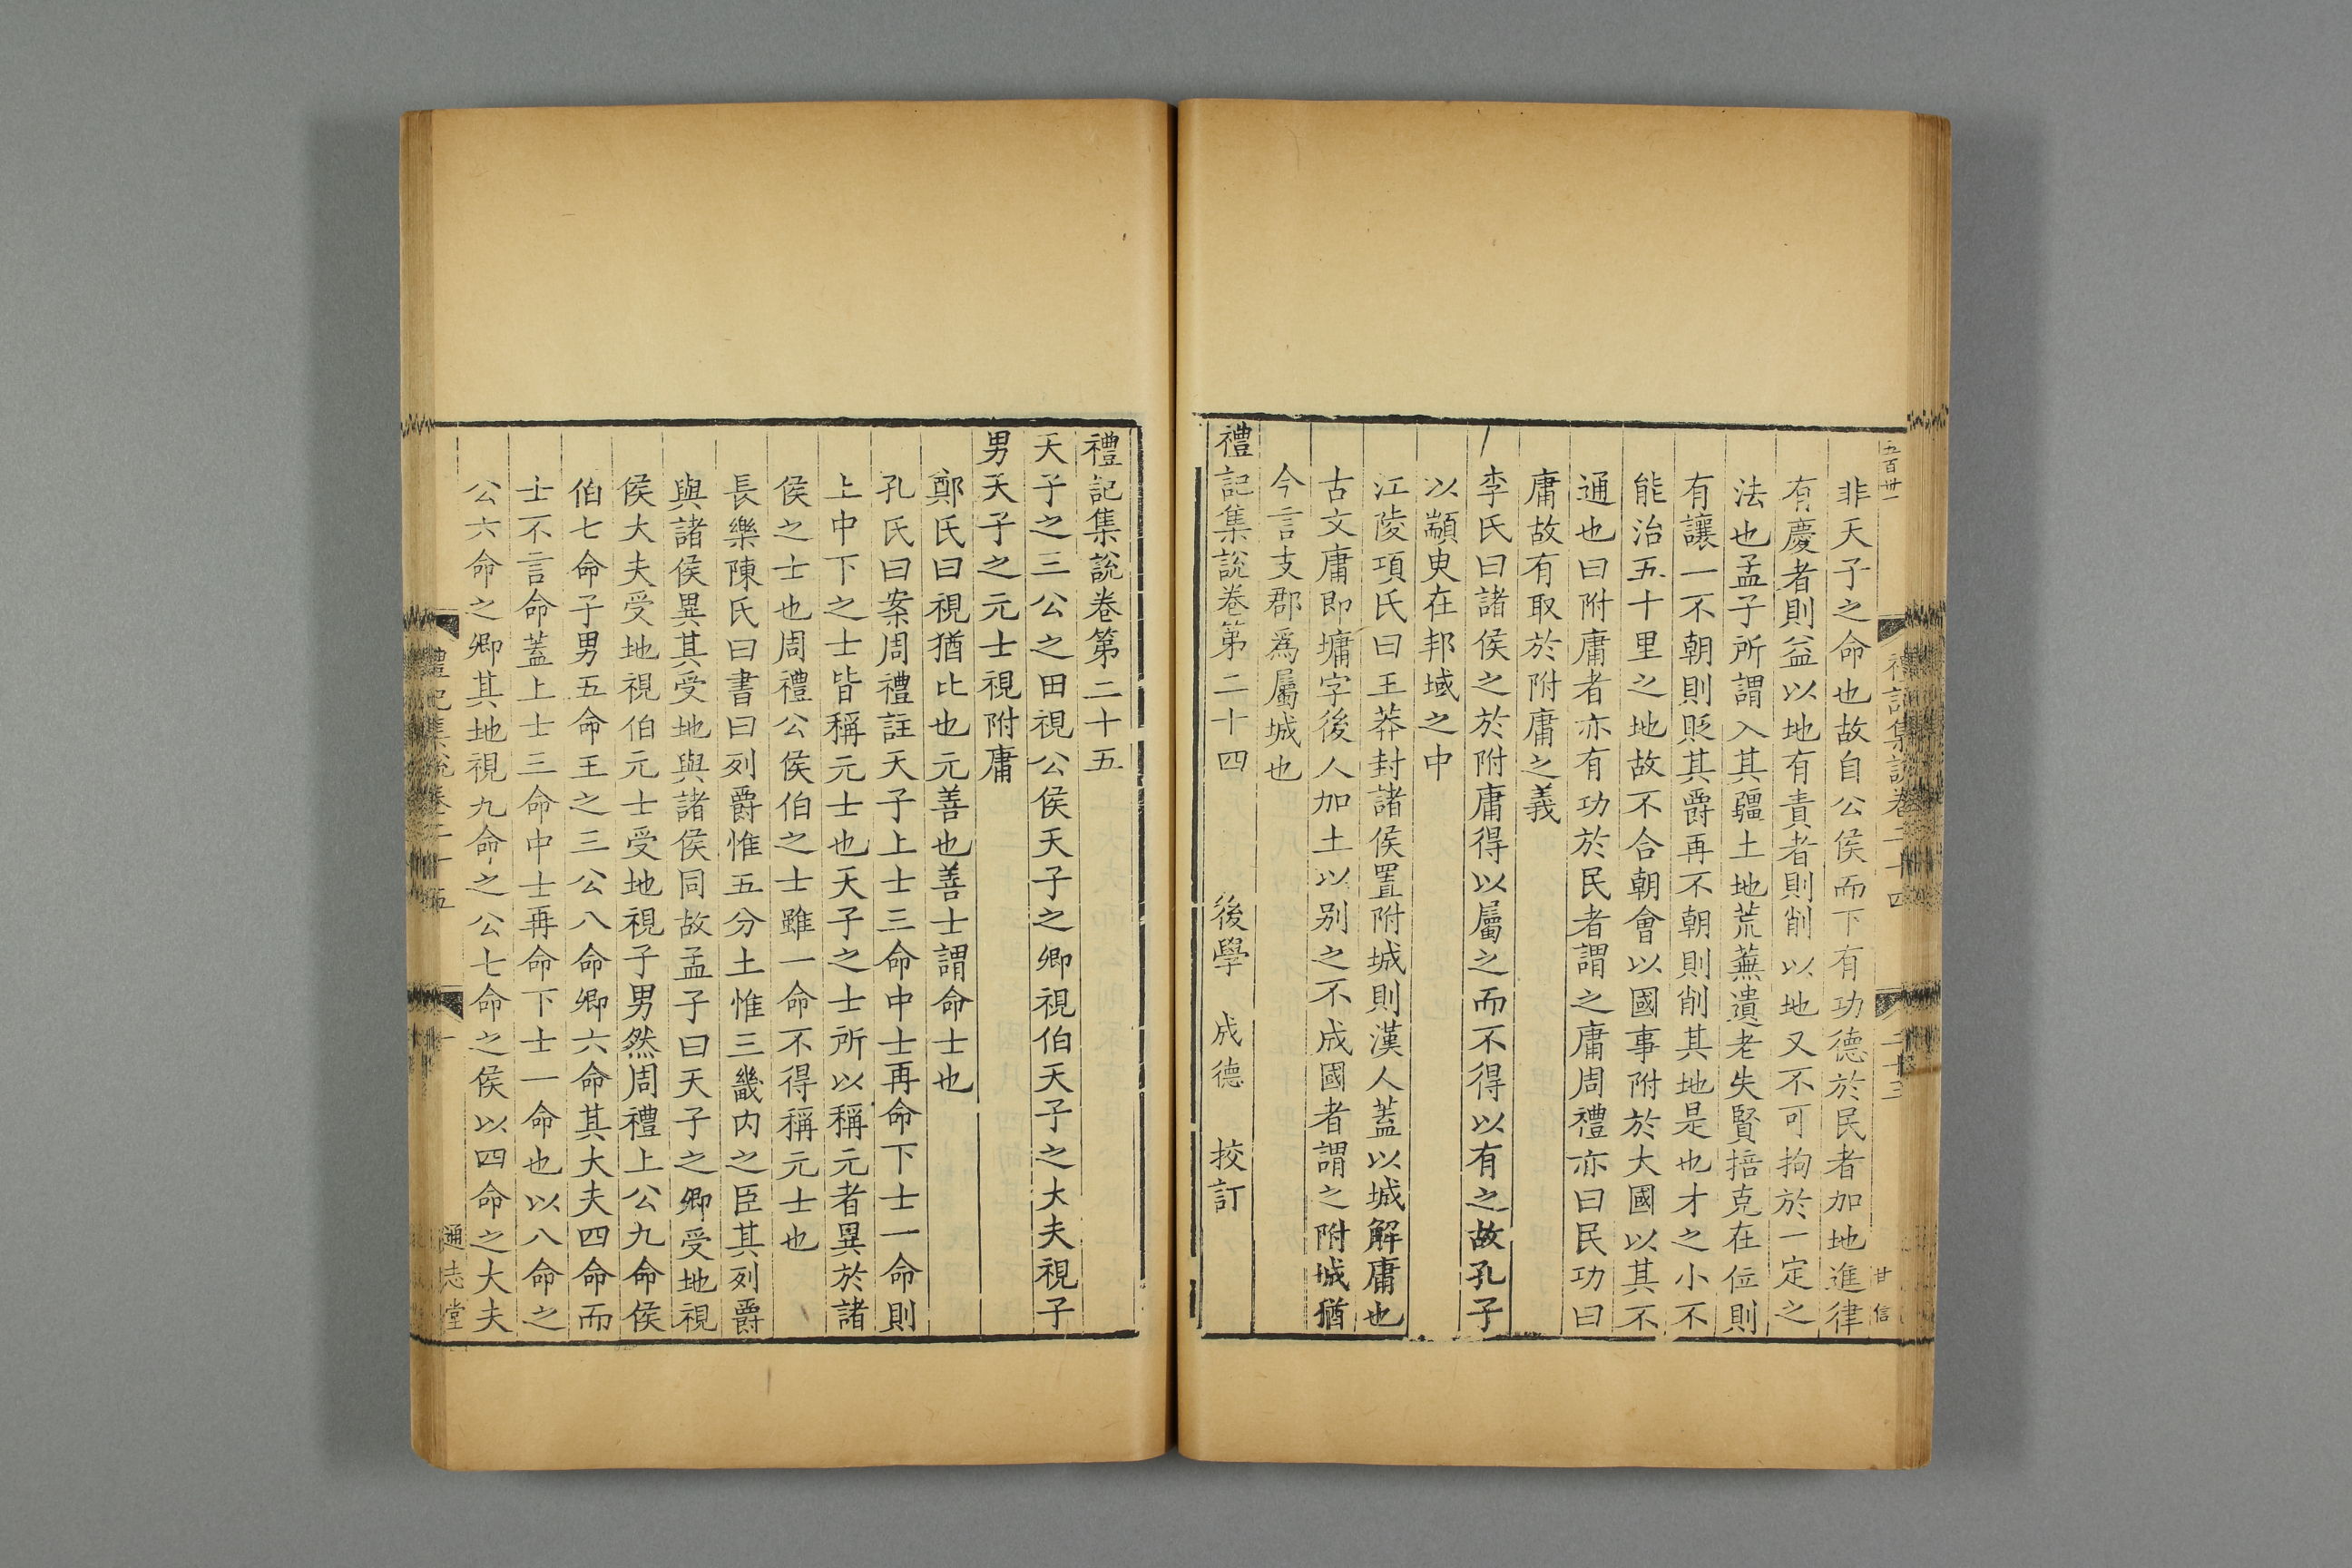 五百卅一
禮記集說卷二十四
二十三
甘信
非天子之命也故自公侯而下有功德於民者加地進律
有慶者則益以地有責者則削以地又不可拘於一定之
法也孟子所謂入其疆土地荒蕪遺老失賢掊克在位則
有讓一不朝則貶其爵再不朝則削其地是也才之小不
能治五十里之地故不合朝會以國事附於大國以其不
通也曰附庸者亦有功於民者謂之庸周禮亦曰民功曰
庸故有取於附庸之義
李氏曰諸侯之於附庸得以屬之而不得以有之故孔子
以顓臾在邦域之中
江陵項氏曰王莽封諸侯置附城則漢人蓋以城解庸也
古文庸即墉字後人加土以别之不成國者謂之附城猶
今言支郡爲屬城也
禮記集說卷第二十四 後學 成德 挍訂
禮記集說卷第二十五
天子之三公之田視公侯天子之卿視伯天子之大夫視子
男天子之元士視附庸
鄭氏曰視猶比也元善也善士謂命士也
孔氏曰案周禮註天子上士三命中士再命下士一命則
上中下之士皆稱元士也天子之士所以稱元者異於諸
侯之士也周禮公侯伯之士雖一命不得稱元士也
長樂陳氏曰書曰列爵惟五分土惟三畿内之臣其列爵
與諸侯異其受地與諸侯同故孟子曰天子之卿受地視
侯大夫受地視伯元士受地視子男然周禮上公九命侯
伯七命子男五命王之三公八命卿六命其大夫四命而
士不言命蓋上士三命中士再命下士一命也以八命之
公六命之卿其地視九命之公七命之侯以四命之大夫
禮記集說卷二十五
一
通志堂